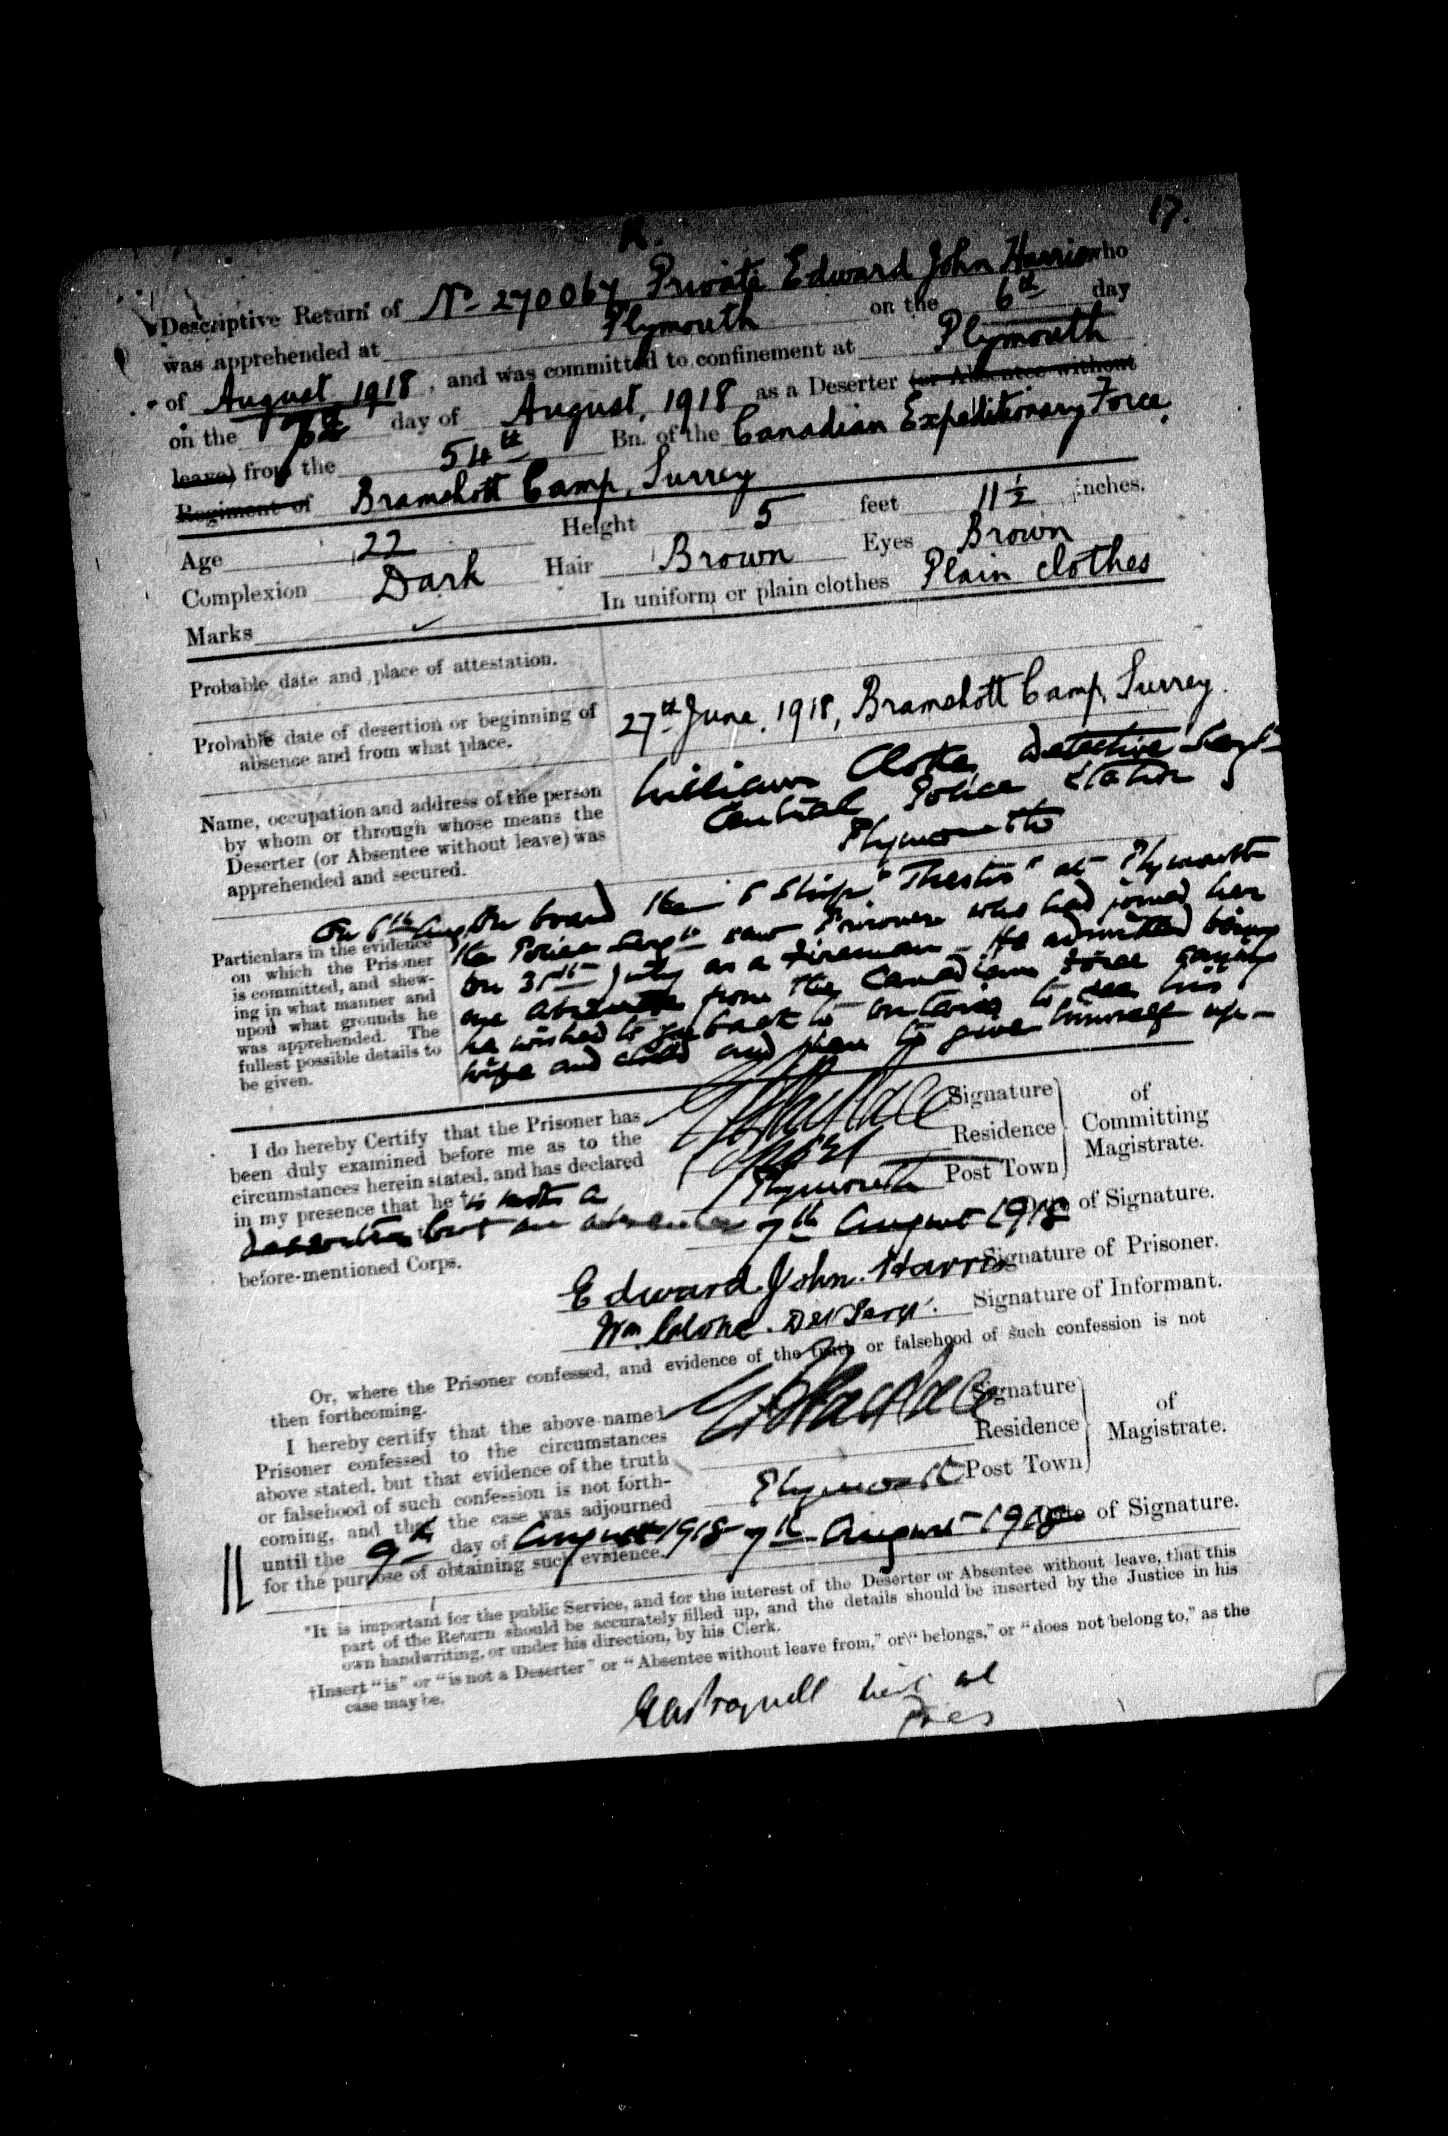 17.
Descriptive Return of No 270067 Private Edward John Harris who
was apprehended at Plymouth on the 6th day
of August 1918, and was committed to confinement at Plymouth
on the 7th day of August, 1918 as a Deserter (or Absentee without
leave) from the 54th Bn. of the Canadian Expeditionary Force.
Regiment of Bramshott Camp, Surrey
Age 22 Height 5 feet 11½ inches.
Complexion Dark Hair Brown Eyes Brown
Marks In uniform or plain clothes Plain clothes
Probable date and place of attestation.
Probable date of desertion or beginning of
absence and from what place.
27th June, 1918, Bramshott Camp, Surrey.
Name, occupation and address of the person
by whom or through whose means the
Deserter (or Absentee without leave) was
apprehended and secured.
William Detective Sergt
Central Police Station
Plymouth
Particulars in the evidence
on which the Prisoner
is committed, and shew-
ing in what manner and
upon what grounds he
was apprehended. The
fullest possible details to
be given.
On 6th Aug On board the Ship " " at Plymouth
the Police Sergt saw Prisoner who had joined her
on 31st July as a Fireman - He admitted being
an absentee from the Canadian Force saying
he wished to go back to Ontario to see his
wife and child and then to give himself up -
I do hereby Certify that the Prisoner has
been duly examined before me as to the
circumstances herein stated, and has declared
in my presence that he is not a
but an absentee
before-mentioned Corps.
Signature
Residence
Plymouth Post Town
of
Committing
Magistrate.
7th August 1918 of Signature.
Edward John Harris Signature of Prisoner.
Wm. Det Sergt. Signature of Informant.
Or, where the Prisoner confessed, and evidence of the truth or falsehood of such confession is not
then forthcoming.
I hereby certify that the above-named
Prisoner confessed to the circumstances
above stated, but that evidence of the truth
or falsehood of such confession is not forth-
coming, and that the case was adjourned
until the 9th day of August 1918
for the purpose of obtaining such evidence.
Signature
Residence
Plymouth Post Town
of
Magistrate.
7th August 1918 Date of Signature.
*It is important for the public Service, and for the interest of the Deserter or Absentee without leave, that this
part of the Return should be accurately filled up, and the details should be inserted by the Justice in his
own handwriting, or under his direction, by his Clerk.
†Insert "is" or "is not a Deserter" or "Absentee without leave from," or "belongs," or "does not belong to," as the
case may be.